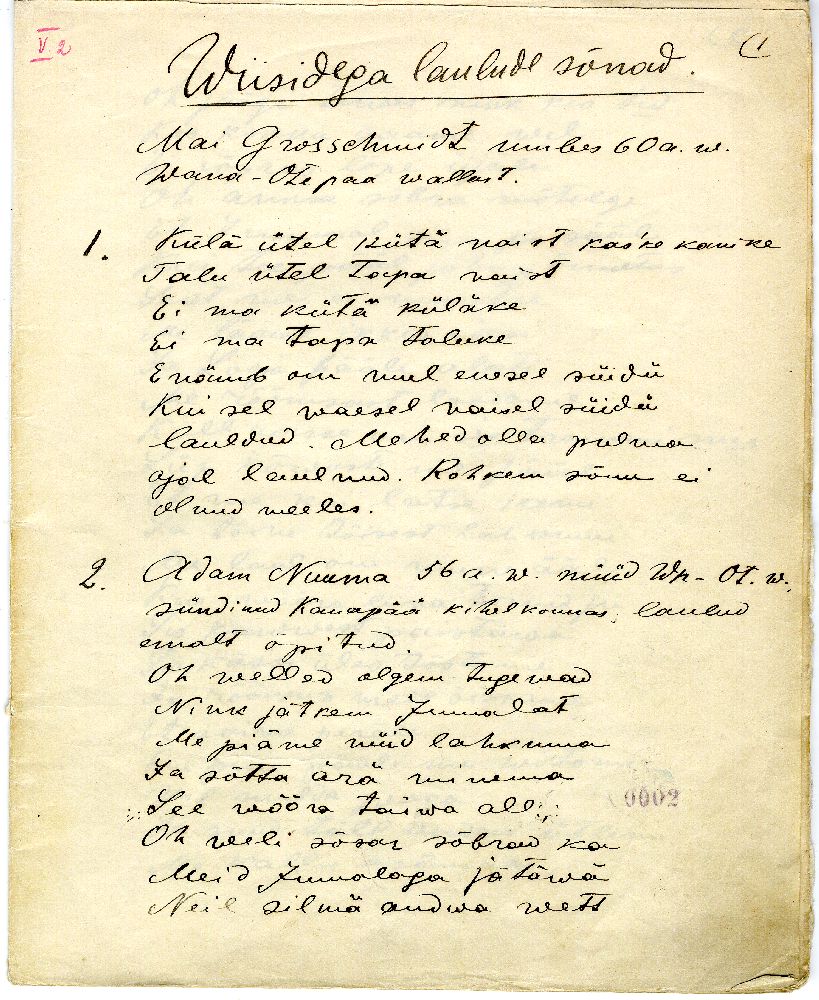 V 2
(1
Wiisidega laulude sõnad.
Mai Grosschmidt umbes 60 a. w.
Wana-Otepaa wallast.
1. Külä ütel kütä naist kas'ke kanike
Talu ütel tapa naist
Ei ma kütä küläke
Ei ma tapa taluke
Enämb om mul enesel süidü
Kui sel waesel naisel süidü
lauldud. Mehed olla pulma
ajal laulnud. Rohkem sõnu ei
olnud meeles.
2. Adam Nuuma 56 a. w. nüüd Wn-Ot. w.
sündinud Kanapää kihelkonnas, laulud
emalt õpitud.
Oh welled olgem tugewad
Nink jätkem Jumalat
Me piäme nüid lahkuma
Ja sõtta ärä minema
:,: See wõõra taiwa all :,:
Oh weli sõsar sõbrad ka
Meid Jumalaga jätäwä
Neil silmä andwa wett
0002